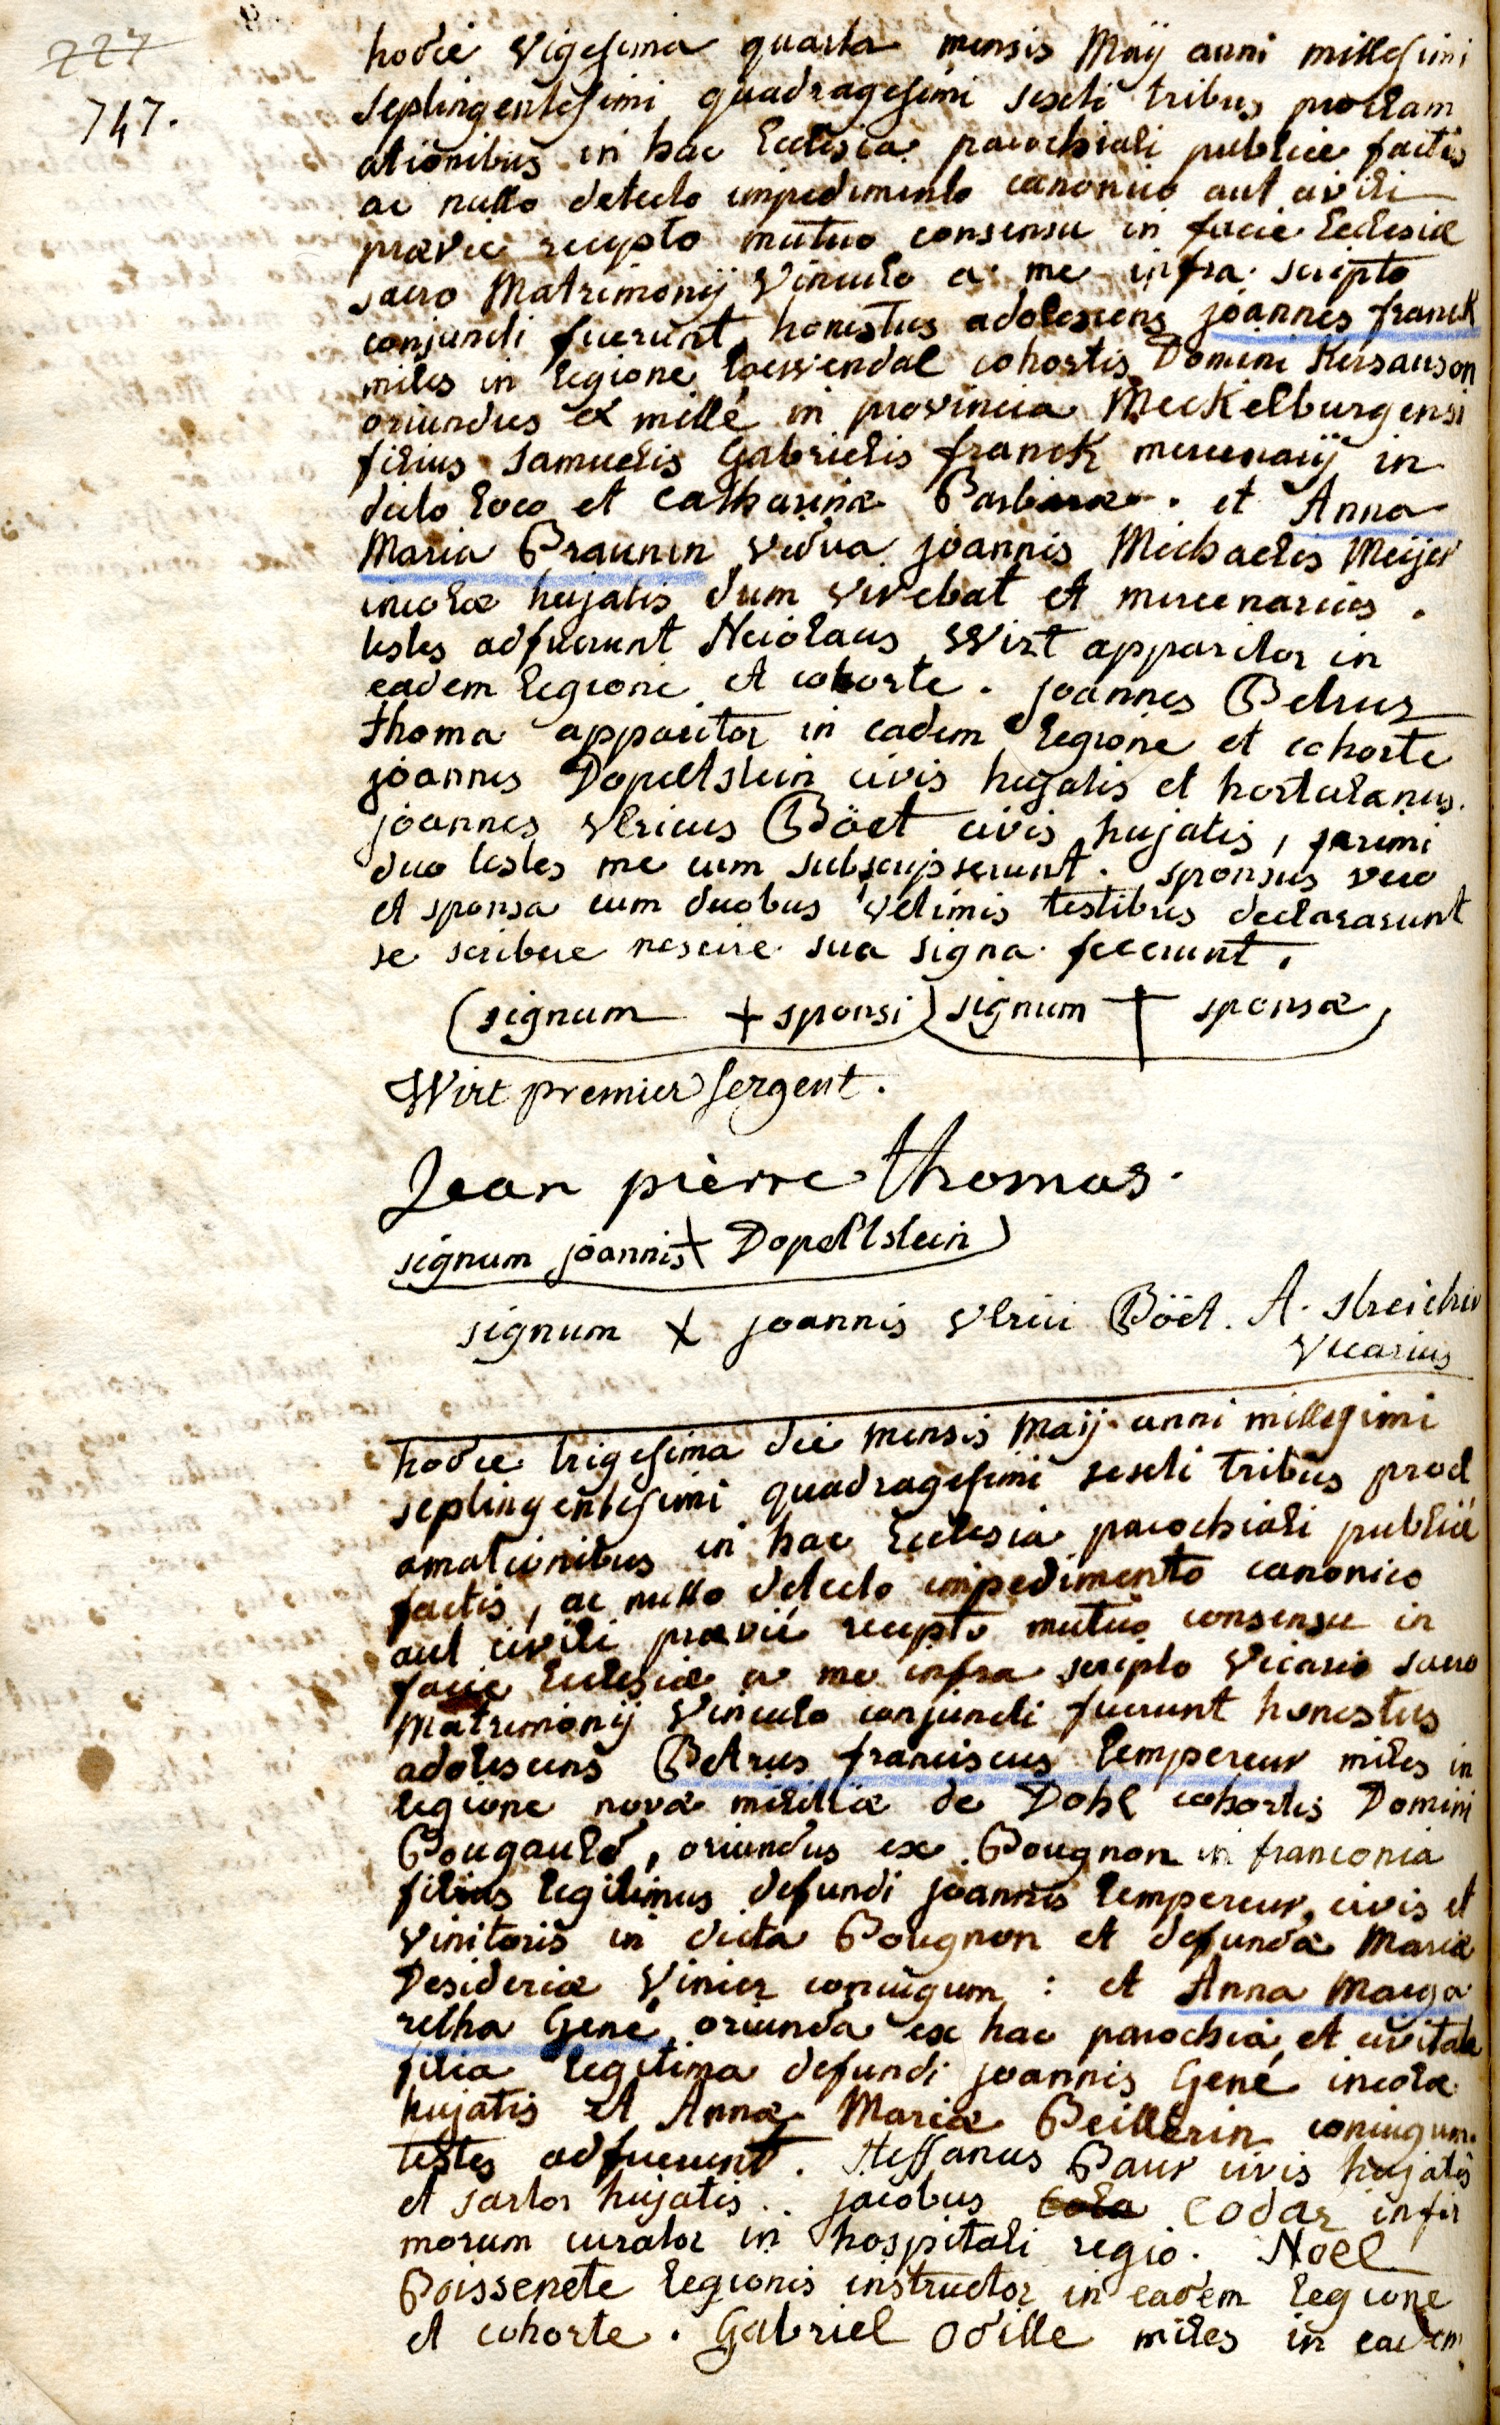 227
747.
hodie vigesima quarta mensis Maÿ anni millesimi
septingentesimi quadragesimi sexti tribus proclam
ationibus in hac Ecclesia parochiali publice factis
ac nullo detecto impedimento canonico aut civili
prævie recepto mutuo consensu in facie Ecclesiæ
sacro Matrimonÿ Vinculo a me infra scripto
conjuncti fuerunt, honestus adolescens joannes franck
miles in legione Loewendal cohortis Domini Kersauson
oriundus ex mille in provincia Meckelburgensi
filius Samuelis Gabrielis franck mercenarÿ in
dicto loco et Catharinæ Barbaræ. et Anna
Maria Braunin vidua joannis Michaelis Meijer
incolæ hujatis dum vivebat et mercenarius.
testes adfuerunt Nicolaus Wirt apparitor in
eadem legione et cohorte. joannes Petrus
thoma apparitor in eadem legione et cohorte
joannes Dopeltstein civis hujatis et hortulanus.
joannes Ulricus Böet civis hujatis, primi
duo testes me cum subscripserunt. sponsus vero
et sponsa cum duobus ultimis testibus declararunt
se scribere nescire sua signa fecerunt.
signum + sponsi signum + sponsæ
Wirt premier Sergent.
Jean pierre thomas.
signum joannis + Dopeltstein
signum x joannis Ulrici Böet. A. Streicher
Vicarius
hodie trigesima die mensis Maij anni millesimi
septingentesimi quadragesimi sexti tribus procl
amationibus in hac Ecclesia parochiali publice
factis, ac nullo detecto impedimento canonico
aut civili prævie recepto mutuo consensu in
facie Ecclesiæ a me infra scripto Vicario sacro
Matrimonij Vinculo conjuncti fuerunt honestus
adolescens Petrus franciscus Lempereur miles in
legione novæ militiæ de Dohl cohortis Domini
Bougauld, oriundus ex Bougnon in franconia
filius legitimus defuncti joannis Lempereur, civis et
vinitoris in dicta Bougnon et defunctæ Mariæ
Desideriæ Vinier conjugum : et Anna Marga
retha Gené, oriunda ex hac parochia et civitate
filia legitima defuncti joannis Gené incolæ
hujatis et Annæ Mariæ Beillerin conjugum.
testes adfuerunt. Steffanus Baur civis hujatis
et sartor hujatis. jacobus Codar infir
morum curator in hospitali regio. Noel
Boissenete legionis instructor in eadem legione
et cohorte. Gabriel Odille miles in eadem